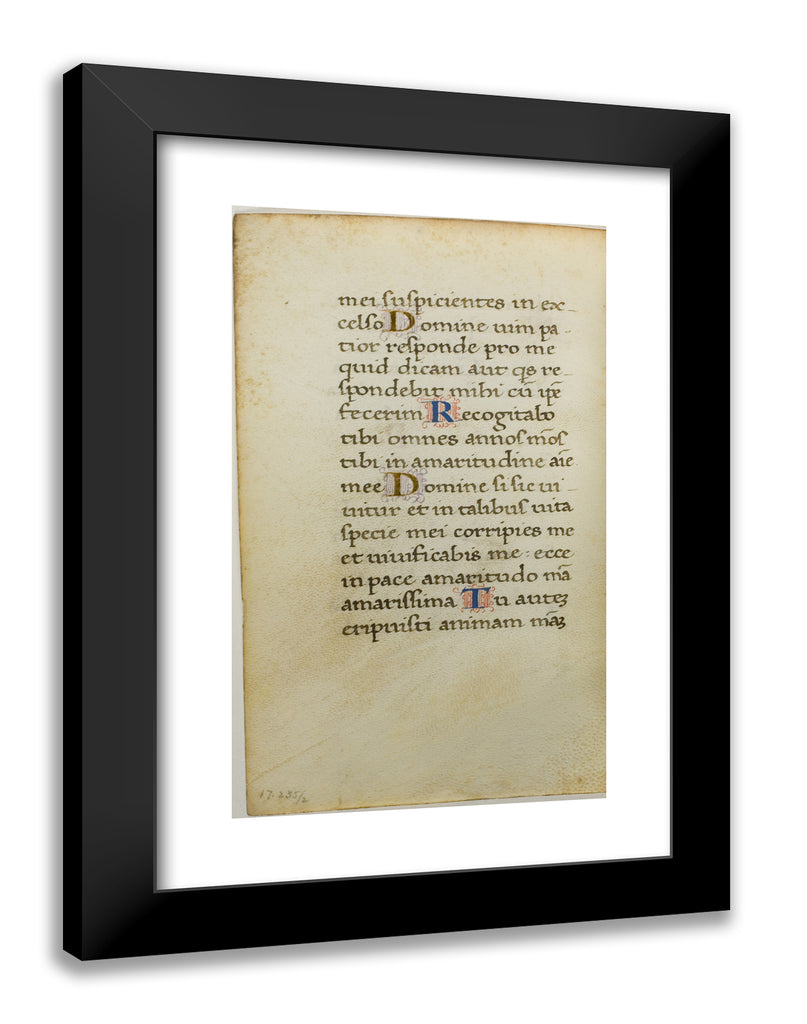 mei ſuſpicientes in ex-
celſo Domine uim pa-
tior reſponde pro me
quid dicam aut q̄s re-
ſpondebit mihi cū ip̄e
fecerim Recogitabo
tibi omnes annoſ m̄oſ
tibi in amaritudine aīe
mee Domine ſi ſic ui-
uitur et in talibuſ uita
ſpecie mei corripies me
et uiuificabis me · ecce
in pace amaritudo m̄a
amariſſima Tu autēꝫ
eripuiſti animam m̄aꝫ
17.235/2